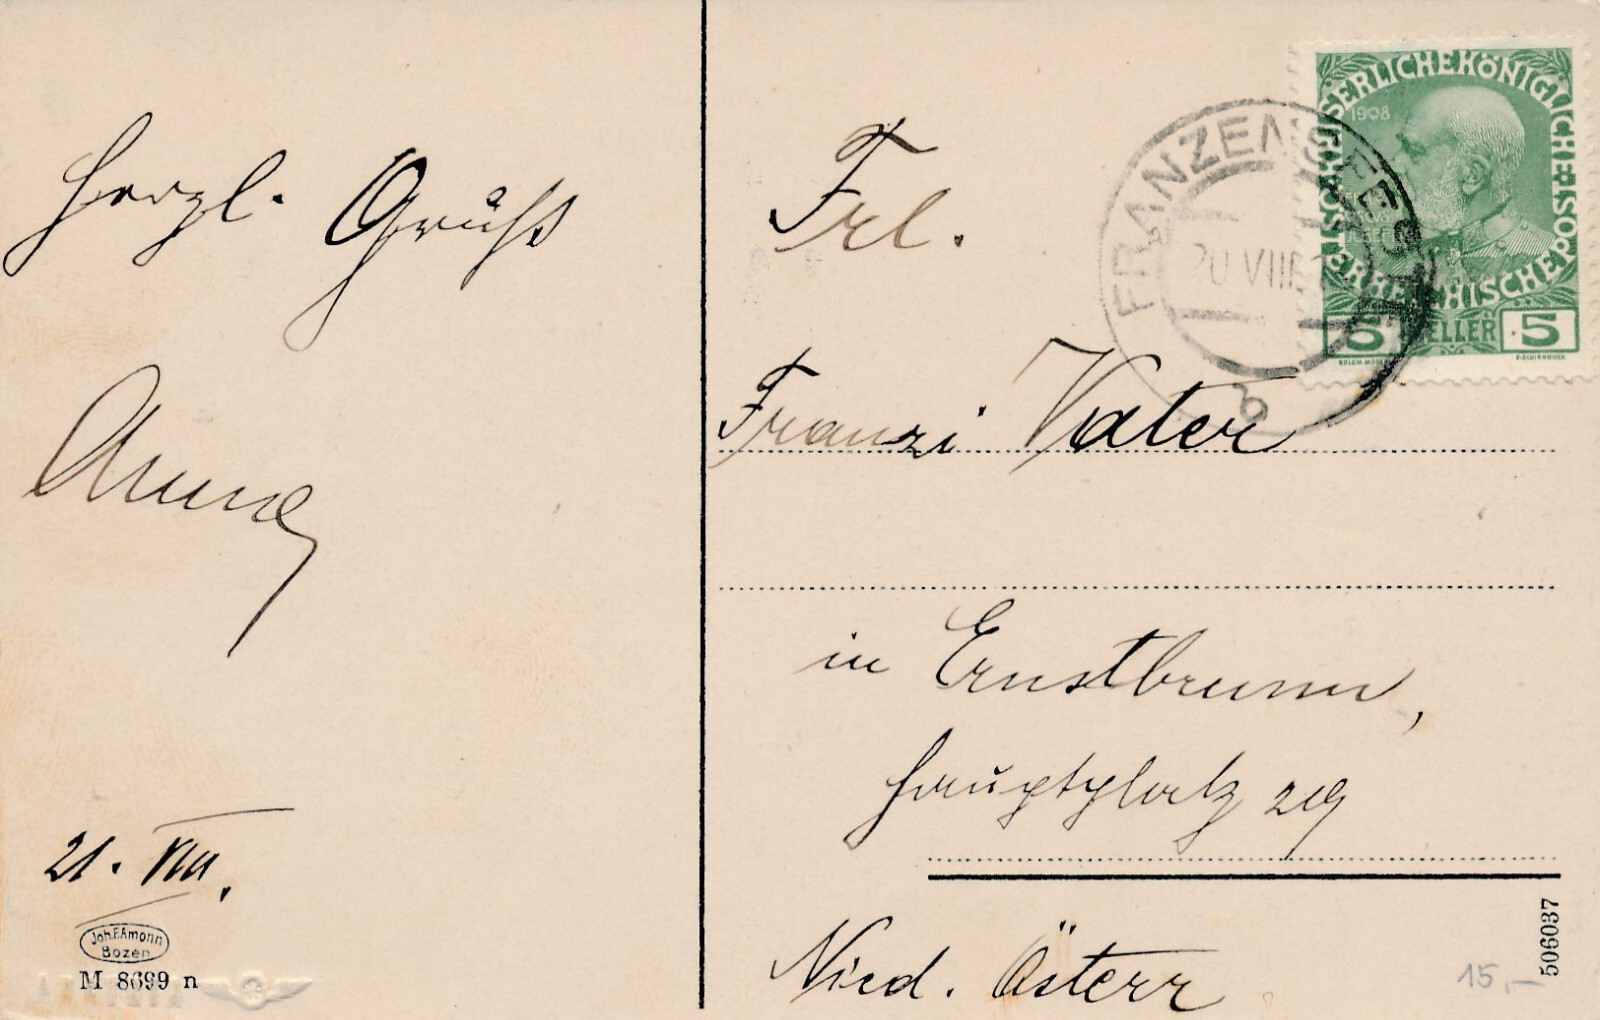 Herzl. Gruß
Anna
21. VIII.
Joh. F. Amonn
Bozen
M 8699 n
Frl.
Franzi Vater
in Ernstbrunn,
Hauptplatz 29
Nied. Österr.
FRANZENSFESTE
20 VIII
KAISERLICHE KÖNIGLICHE ÖSTERREICHISCHE POST
1908
5 HELLER 5
506037
15,–